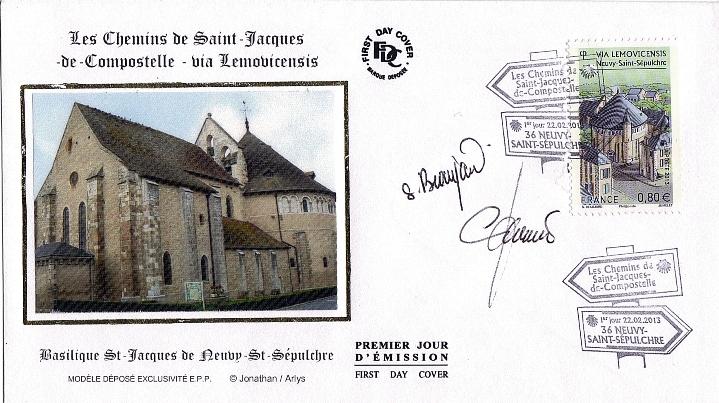 Les Chemins de Saint-Jacques
-de-Compostelle - via Lemovicensis
FIRST DAY COVER
FDC
MARQUE DEPOSEE
VIA LEMOVICENSIS
Neuvy-Saint-Sépulchre
FRANCE
0,80 €
Les Chemins de
Saint-Jacques-
de-Compostelle
1er jour 22.02.2013
36 NEUVY-
SAINT-SÉPULCHRE
Les Chemins de
Saint-Jacques-
de-Compostelle
1er jour 22.02.2013
36 NEUVY-
SAINT-SÉPULCHRE
Basilique St-Jacques de Neuvy-St-Sépulchre
MODÈLE DÉPOSÉ EXCLUSIVITÉ E.P.P. © Jonathan / Arlys
PREMIER JOUR
D'ÉMISSION
FIRST DAY COVER